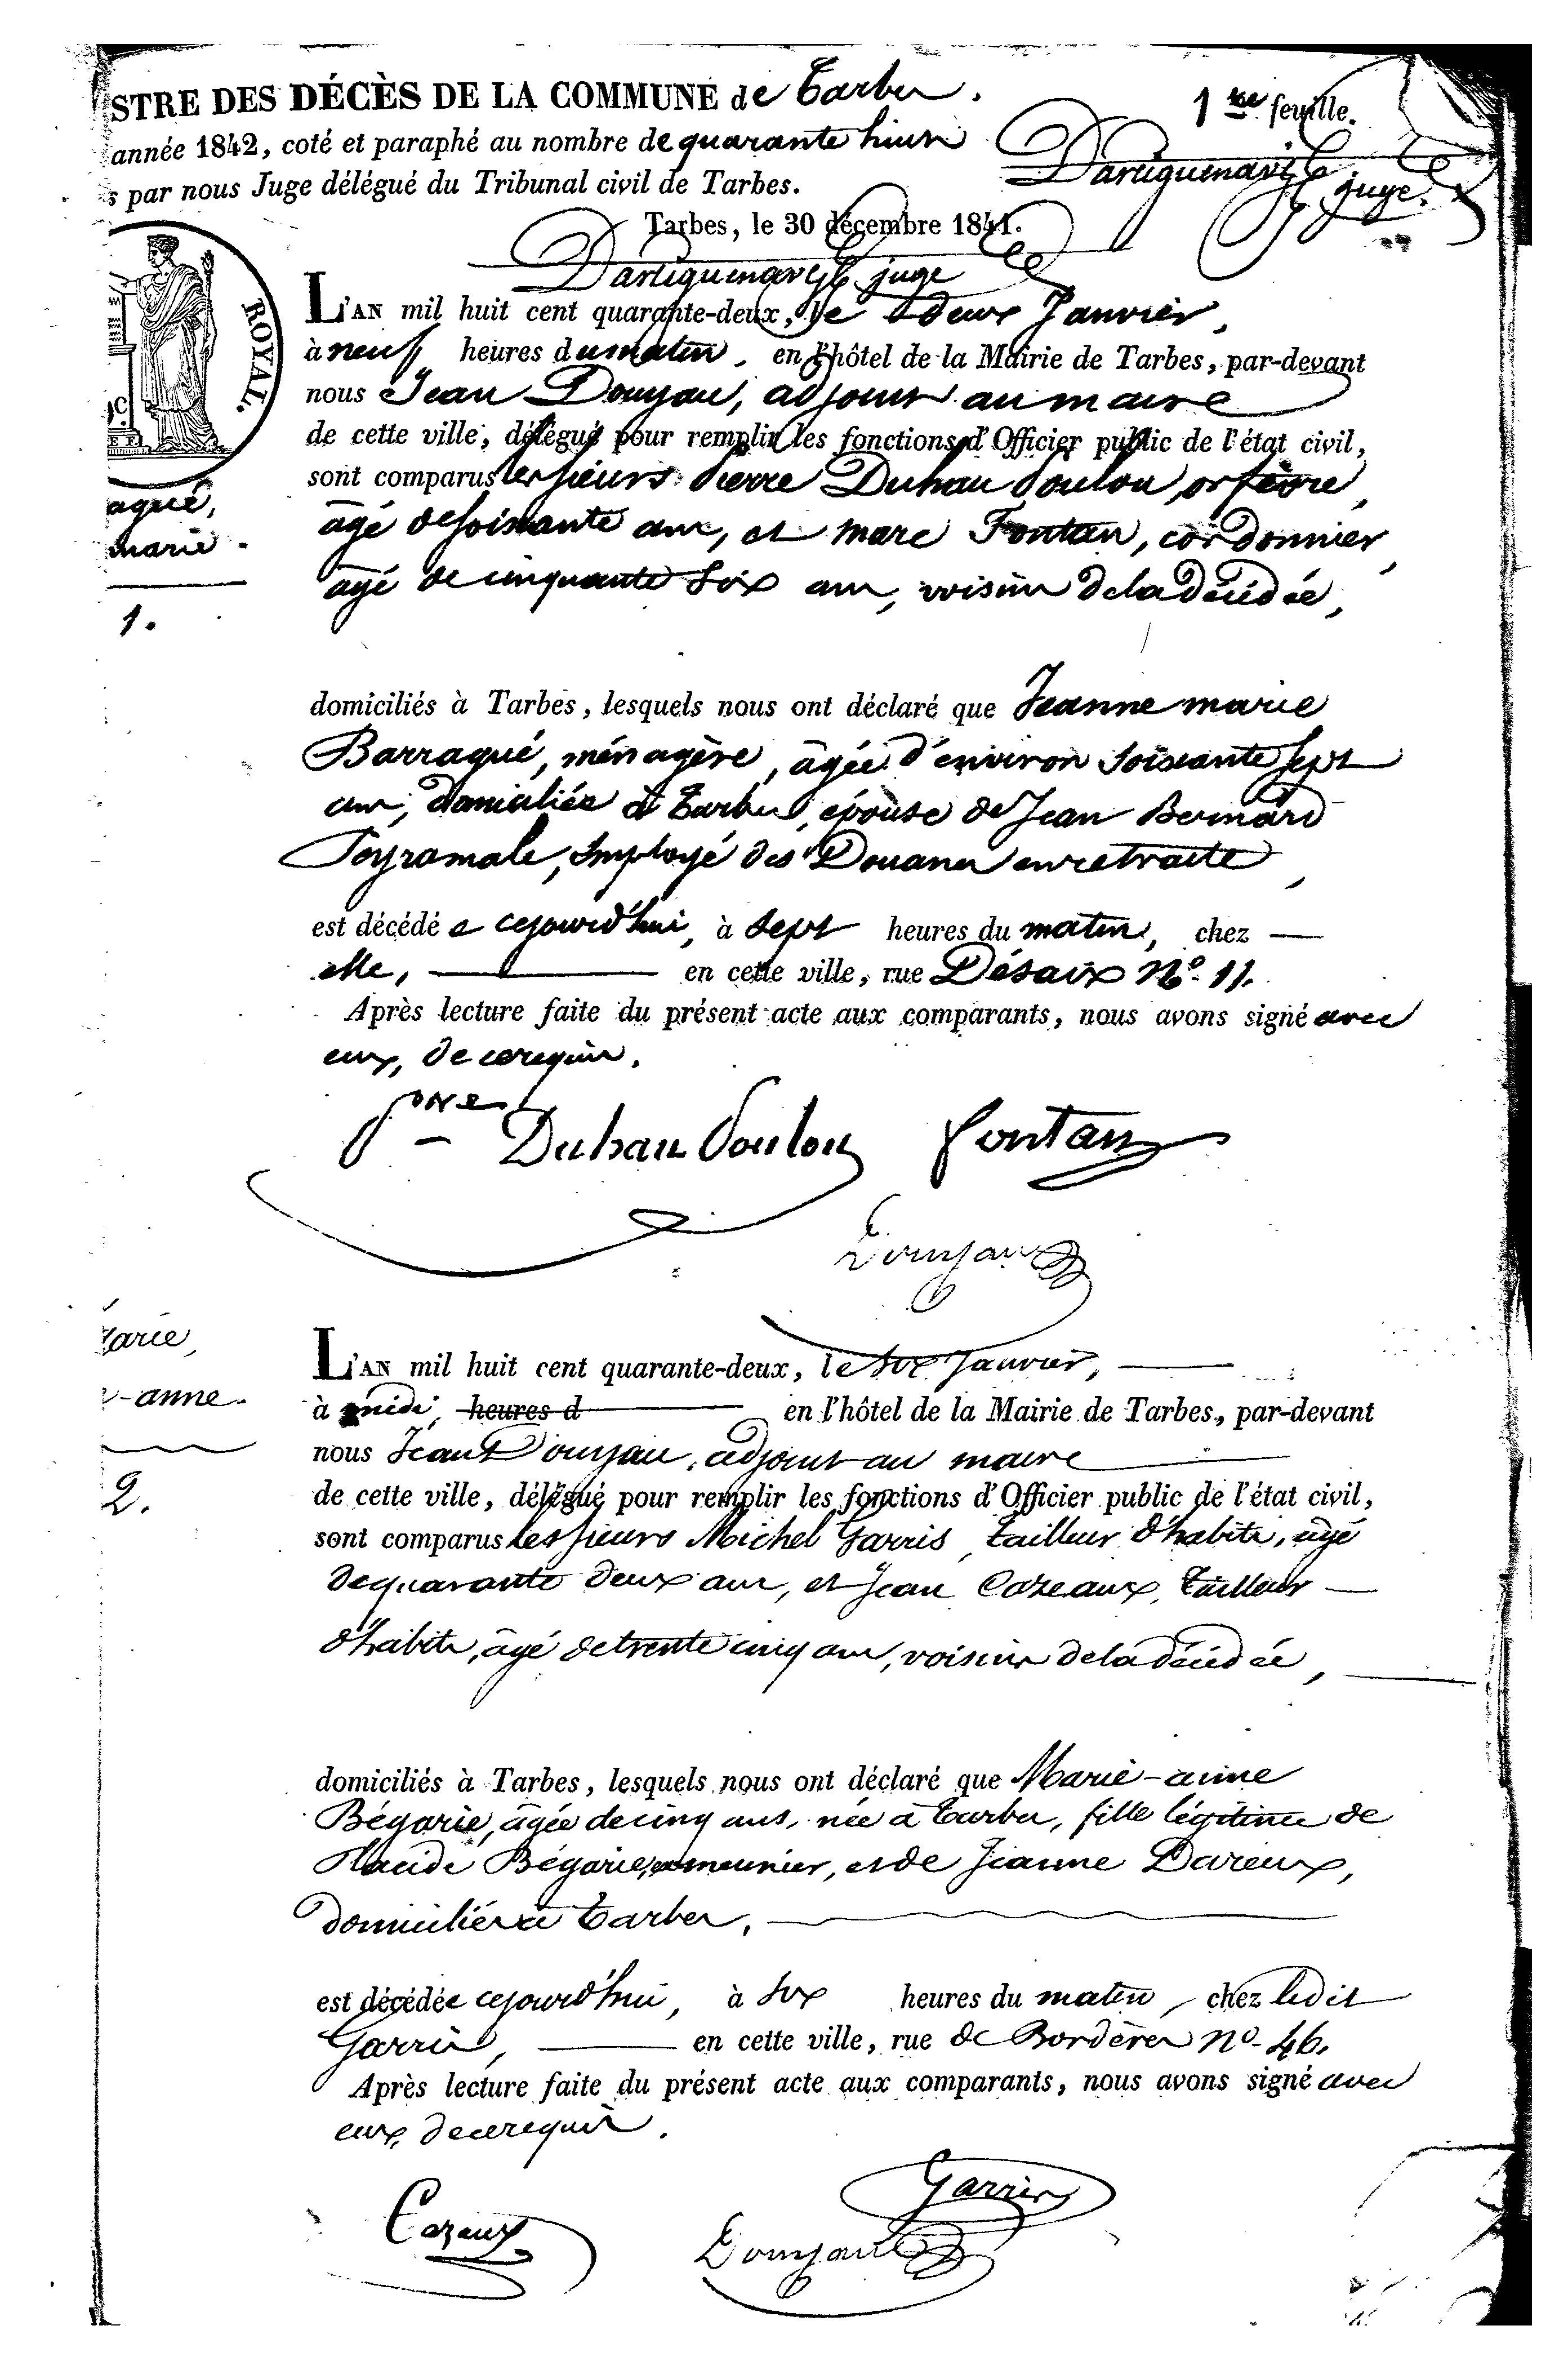 STRE DES DÉCÈS DE LA COMMUNE de Tarbes.
1re feuille.
année 1842, coté et paraphé au nombre de quarante huit
s par nous Juge délégué du Tribunal civil de Tarbes.
juge.
Tarbes, le 30 décembre 1841.
juge
ROYAL.
L'AN mil huit cent quarante-deux, le deux Janvier,
à neuf heures du matin, en l'hôtel de la Mairie de Tarbes, par-devant
nous Jean Doujau, adjoint au maire
de cette ville, délégué pour remplir les fonctions d'Officier public de l'état civil,
sont comparus les sieurs Pierre Duhau Poulou, orfèvre,
âgé de soixante ans, et marc Fontan, cordonnier,
âgé de cinquante six ans, voisins de la décédée,
agué,
marie.
1.
domiciliés à Tarbes, lesquels nous ont déclaré que Jeanne marie
Barragué, ménagère, âgée d'environ soixante sept
ans, domiciliée à Tarbes, épouse de Jean Bernard
Peyramale, employé des Douanes en retraite,
est décédée cejourd'hui, à sept heures du matin, chez
elle, en cette ville, rue Désaix No. 11.
Après lecture faite du présent acte aux comparants, nous avons signé avec
eux, de ce requis.
Pre Duhau Poulou Fontan
Doujau
arie,
-anne.
2.
L'AN mil huit cent quarante-deux, le six Janvier,
à midi, heures d en l'hôtel de la Mairie de Tarbes, par-devant
nous Jean Doujau, adjoint au maire
de cette ville, délégué pour remplir les fonctions d'Officier public de l'état civil,
sont comparus les sieurs Michel Garris, tailleur d'habits, âgé
de quarante deux ans, et Jean Cazeaux, tailleur
d'habits, âgé de trente cinq ans, voisins de la décédée,
domiciliés à Tarbes, lesquels nous ont déclaré que Marie-anne
Bégarie, âgée de cinq ans, née à Tarbes, fille légitime de
Placide Bégarie, meunier, et de Jeanne Dareux,
domiciliés à Tarbes.
est décédée cejourd'hui, à six heures du matin, chez ledit
Garris, en cette ville, rue de Bordères no. 46.
Après lecture faite du présent acte aux comparants, nous avons signé avec
eux, de ce requis.
Garris
Cazeaux
Doujau